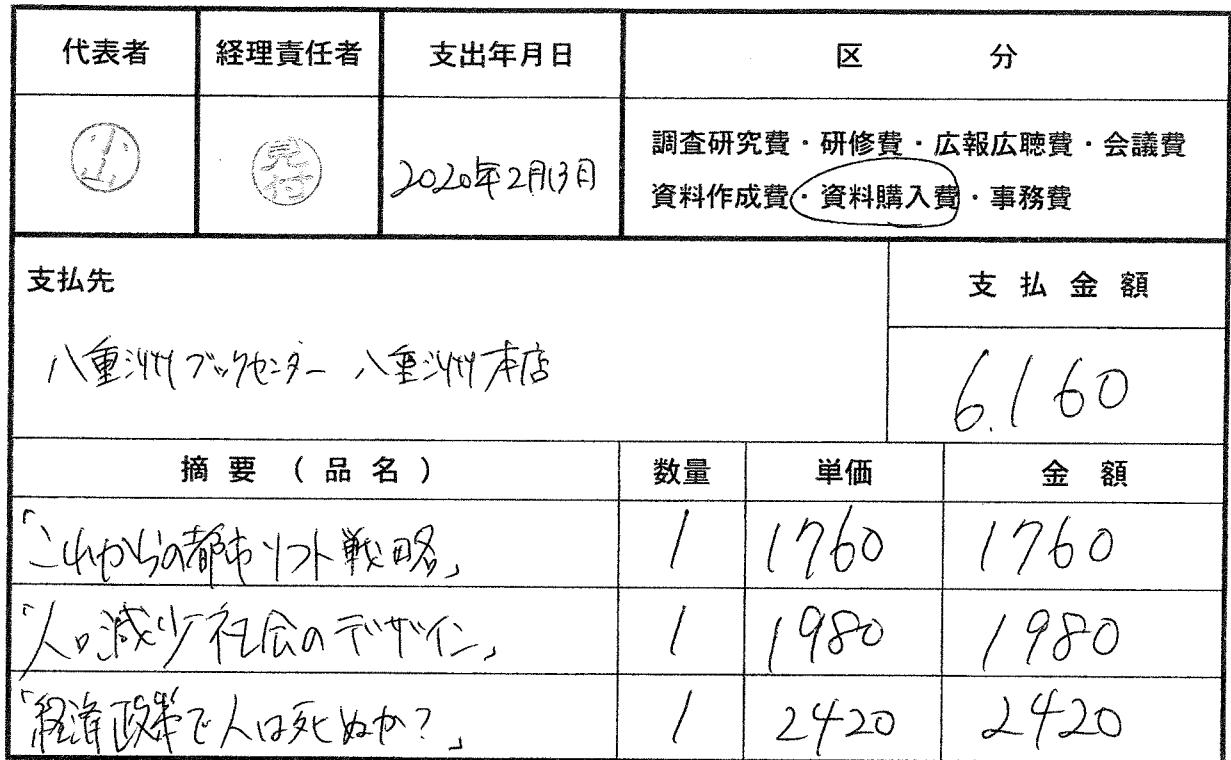 代表者 経理責任者 支出年月日 区 分
小山 児付 2020年2月13日 調査研究費・研修費・広報広聴費・会議費
資料作成費・資料購入費・事務費
支払先 支払金額
八重洲ブックセンター 八重洲本店 6.160
摘要(品名) 数量 単価 金額
「これからの都市ソフト戦略」 1 1760 1760
「人口減少社会のデザイン」 1 1980 1980
「経済政策で人は死ぬか?」 1 2420 2420